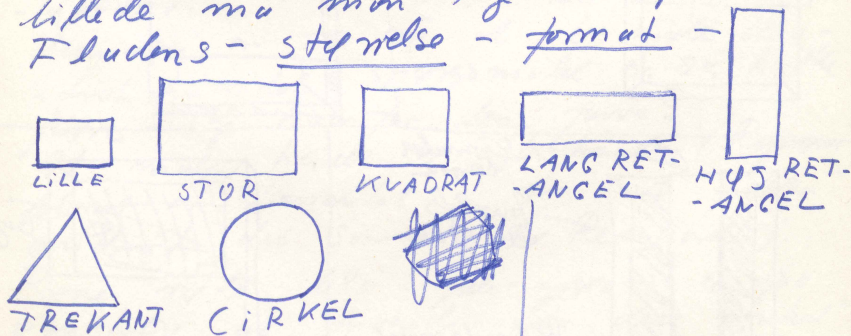 billede må man
Fladens - størrelse - format -
LILLE
STOR
KVADRAT
LANG RET-
-ANGEL
HØJ RET-
-ANGEL
TREKANT
CIRKEL